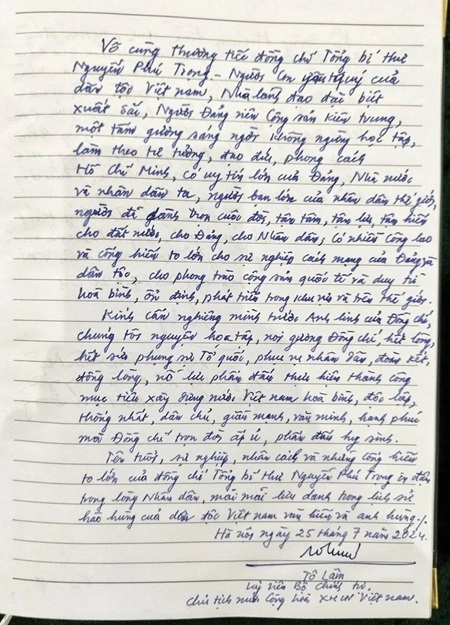 Vô cùng thương tiếc đồng chí Tổng bí thư
Nguyễn Phú Trọng - Người con yêu quý của
dân tộc Việt Nam, Nhà lãnh đạo đặc biệt
xuất sắc, Người Đảng viên Cộng sản kiên trung,
một tấm gương sáng ngời về học tập,
làm theo tư tưởng, đạo đức, phong cách
Hồ Chí Minh, có uy tín lớn của Đảng, Nhà nước
và nhân dân ta, người bạn lớn của nhân dân thế giới,
người đã dành trọn cuộc đời, tận tâm, tận lực, tận hiến
cho đất nước, cho Đảng, cho Nhân dân, có nhiều công lao
và cống hiến to lớn cho sự nghiệp cách mạng của Đảng và
dân tộc, cho phong trào cộng sản quốc tế và duy trì
hoà bình, ổn định, phát triển trong khu vực và trên thế giới.
Kính cẩn nghiêng mình trước Anh linh của Đồng chí,
chúng tôi nguyện học tập, noi gương Đồng chí, hết lòng,
hết sức phụng sự Tổ quốc, phục vụ nhân dân, đoàn kết,
đồng lòng, nỗ lực phấn đấu thực hiện thắng công
mục tiêu xây dựng nước Việt Nam hoà bình, độc lập,
thống nhất, dân chủ, giàu mạnh, văn minh, hạnh phúc
mà Đồng chí trọn đời ấp ủ, phấn đấu hy sinh.
Tên tuổi, sự nghiệp, nhân cách và những cống hiến
to lớn của đồng chí Tổng bí thư Nguyễn Phú Trọng
trong lòng Nhân dân, mãi mãi lưu danh trong lịch sử
hào hùng của dân tộc Việt Nam văn hiến và anh hùng./.
Hà nội, ngày 25 tháng 7 năm 2024.
Tô Lâm
Uỷ viên Bộ Chính trị
Chủ tịch nước Cộng hoà XHCN Việt Nam.